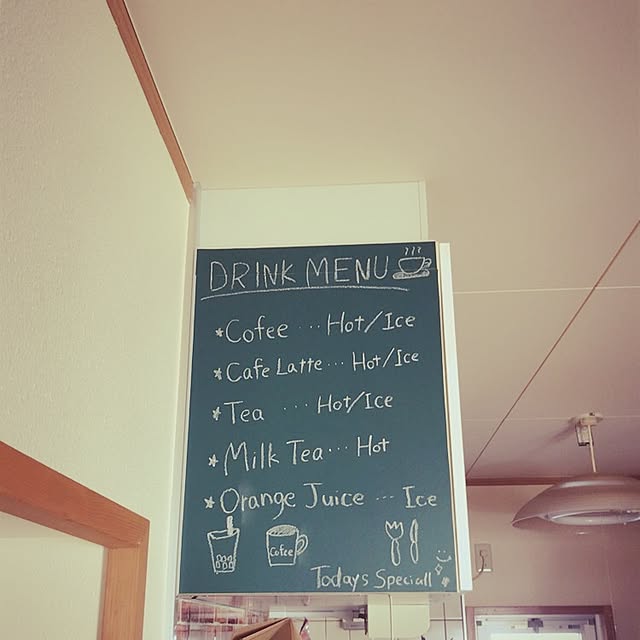 DRINK MENU
*Cofee ... Hot/Ice
*Cafe Latte... Hot/Ice
*Tea ... Hot/Ice
*Milk Tea... Hot
*Orange Juice ... Ice
Cofee
Todays Speciall